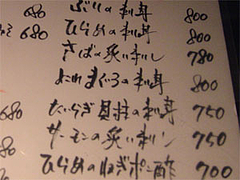 680 ぶりの刺身 800
680 ひらめの刺身 800
さばの炙り刺し 780
まぐろの刺身
680 たいらぎ貝柱の刺身 750
サーモンの炙り刺し 750
ひらめのねぎポン酢 700